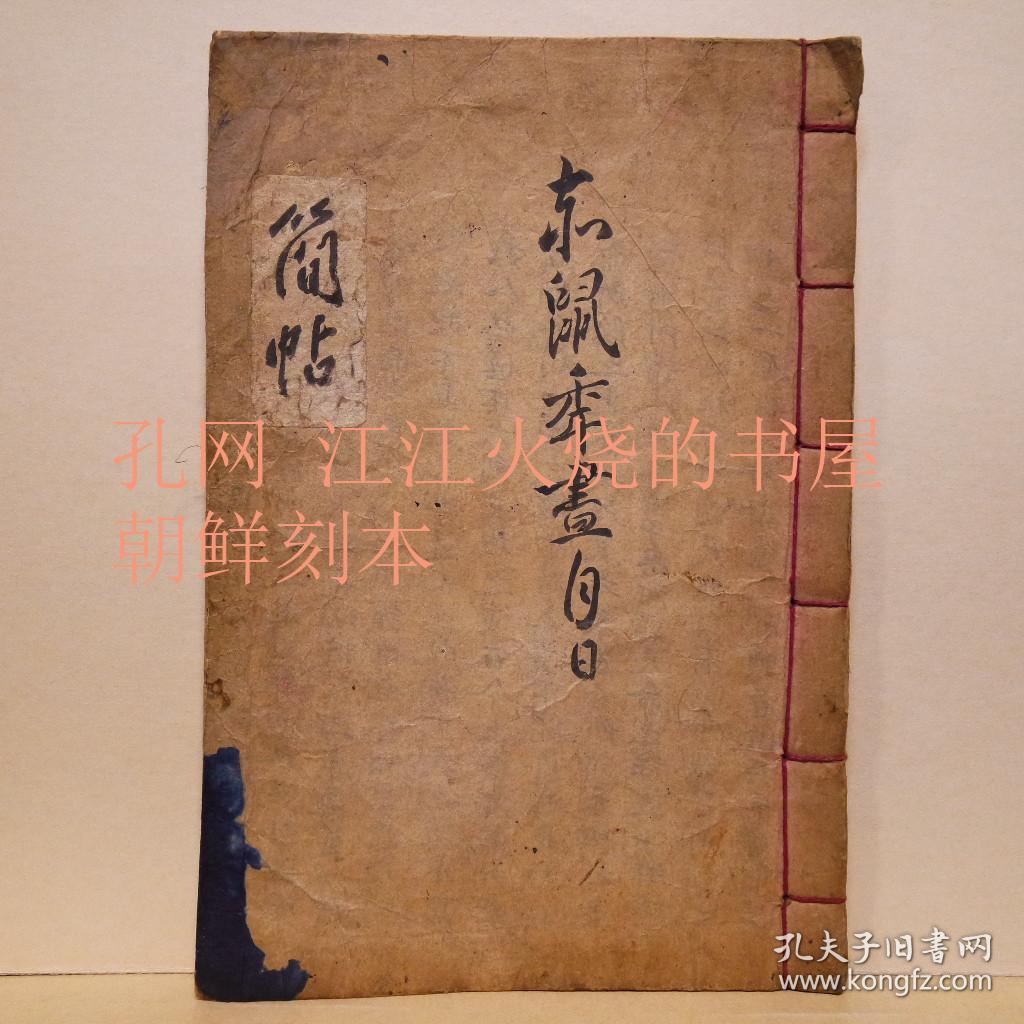 赤鼠秊晝月日
簡帖
孔网 江江火烧的书屋
朝鲜刻本
孔夫子旧書网
www.kongfz.com